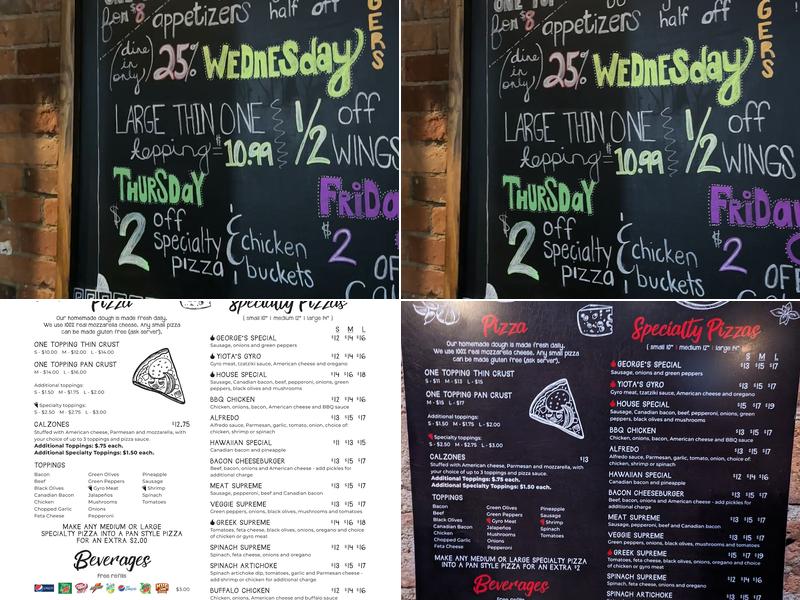 from $8 appetizers half off
GERS
(dine in only) 25% WEDNESDAY
LARGE THIN ONE
topping = $10.99
1/2 off
WINGS
THURSDAY
$2 off
specialty
pizza
& chicken
buckets
FRIDA
$2
from $8 appetizers half off
GERS
(dine in only) 25% WEDNESDAY
LARGE THIN ONE
topping = $10.99
1/2 off
WINGS
THURSDAY
$2 off
specialty
pizza
& chicken
buckets
FRIDAY
$2
OFF
Pizza
Our homemade dough is made fresh daily.
We use 100% real mozzarella cheese. Any small pizza
can be made gluten free (ask server).
ONE TOPPING THIN CRUST
S - $10.00 M - $12.00 L - $14.00
ONE TOPPING PAN CRUST
M - $14.00 L - $16.00
Additional toppings:
S - $1.50 M - $1.75 L - $2.00
Specialty toppings:
S - $2.50 M - $2.75 L - $3.00
CALZONES $12.75
Stuffed with American cheese, Parmesan and mozzarella, with
your choice of up to 3 toppings and pizza sauce.
Additional Toppings: $.75 each.
Additional Specialty Toppings: $1.50 each.
TOPPINGS
Bacon Green Olives Pineapple
Beef Green Peppers Sausage
Black Olives Gyro Meat Shrimp
Canadian Bacon Jalapeños Spinach
Chicken Mushrooms Tomatoes
Chopped Garlic Onions
Feta Cheese Pepperoni
MAKE ANY MEDIUM OR LARGE
SPECIALTY PIZZA INTO A PAN PIZZA
FOR AN EXTRA $2.00
Beverages
Free refills
$3.00
Specialty Pizzas
( small 10" | medium 12" | large 14" )
S M L
GEORGE'S SPECIAL $12 $14 $16
Sausage, onions and green peppers
YIOTA'S GYRO $12 $14 $16
Gyro meat, tzatziki sauce, American cheese and oregano
HOUSE SPECIAL $14 $16 $18
Sausage, Canadian bacon, beef, pepperoni, onions, green
peppers, black olives and mushrooms
BBQ CHICKEN $12 $14 $16
Chicken, onions, bacon, American cheese and BBQ sauce
ALFREDO $13 $15 $17
Alfredo sauce, Parmesan, garlic, tomato, onion, choice of:
chicken, shrimp or spinach
HAWAIIAN SPECIAL $11 $13 $15
Canadian bacon and pineapple
BACON CHEESEBURGER $13 $15 $17
Beef, bacon, onions and American cheese - add pickles for
additional charge
MEAT SUPREME $13 $15 $17
Sausage, pepperoni, beef and Canadian bacon
VEGGIE SUPREME $13 $15 $17
Green peppers, onions, black olives, mushrooms and tomatoes
GREEK SUPREME $14 $16 $18
Tomatoes, feta cheese, black olives, onions, oregano and choice
of chicken or gyro meat
SPINACH SUPREME $12 $14 $16
Spinach, feta cheese, onions and oregano
SPINACH ARTICHOKE $13 $15 $17
Spinach artichoke dip, tomatoes, garlic and Parmesan cheese -
add shrimp or chicken for additional charge
BUFFALO CHICKEN $12 $14 $16
Chicken, onions, American cheese and buffalo sauce
Pizza
Our homemade dough is made fresh daily.
We use 100% real mozzarella cheese. Any small pizza
can be made gluten free (ask server).
ONE TOPPING THIN CRUST
S - $11 M - $13 L - $15
ONE TOPPING PAN CRUST
M - $15 L - $17
Additional toppings:
S - $1.50 M - $1.75 L - $2.00
Specialty toppings:
S - $2.50 M - $2.75 L - $3.00
CALZONES $13
Stuffed with American cheese, Parmesan and mozzarella, with
your choice of up to 3 toppings and pizza sauce.
Additional Toppings: $.75 each.
Additional Specialty Toppings: $1.50 each.
TOPPINGS
Bacon Green Olives Pineapple
Beef Green Peppers Sausage
Black Olives Gyro Meat Shrimp
Canadian Bacon Jalapeños Spinach
Chicken Mushrooms Tomatoes
Chopped Garlic Onions
Feta Cheese Pepperoni
MAKE ANY MEDIUM OR LARGE SPECIALTY PIZZA
INTO A PAN PIZZA FOR AN EXTRA $2
Beverages
Free refills
Specialty Pizzas
( small 10" | medium 12" | large 14" )
S M L
GEORGE'S SPECIAL $13 $15 $17
Sausage, onions and green peppers
YIOTA'S GYRO $13 $15 $17
Gyro meat, tzatziki sauce, American cheese and oregano
HOUSE SPECIAL $15 $17 $19
Sausage, Canadian bacon, beef, pepperoni, onions, green
peppers, black olives and mushrooms
BBQ CHICKEN $13 $15 $17
Chicken, onions, bacon, American cheese and BBQ sauce
ALFREDO $13 $15 $17
Alfredo sauce, Parmesan, garlic, tomato, onion, choice of:
chicken, shrimp or spinach
HAWAIIAN SPECIAL $12 $14 $16
Canadian bacon and pineapple
BACON CHEESEBURGER $13 $15 $17
Beef, bacon, onions and American cheese - add pickles for
additional charge
MEAT SUPREME $13 $15 $17
Sausage, pepperoni, beef and Canadian bacon
VEGGIE SUPREME $13 $15 $17
Green peppers, onions, black olives, mushrooms and tomatoes
GREEK SUPREME $15 $17 $19
Tomatoes, feta cheese, black olives, onions, oregano and choice
of chicken or gyro meat
SPINACH SUPREME $13 $15 $17
Spinach, feta cheese, onions and oregano
SPINACH ARTICHOKE $13 $15 $17